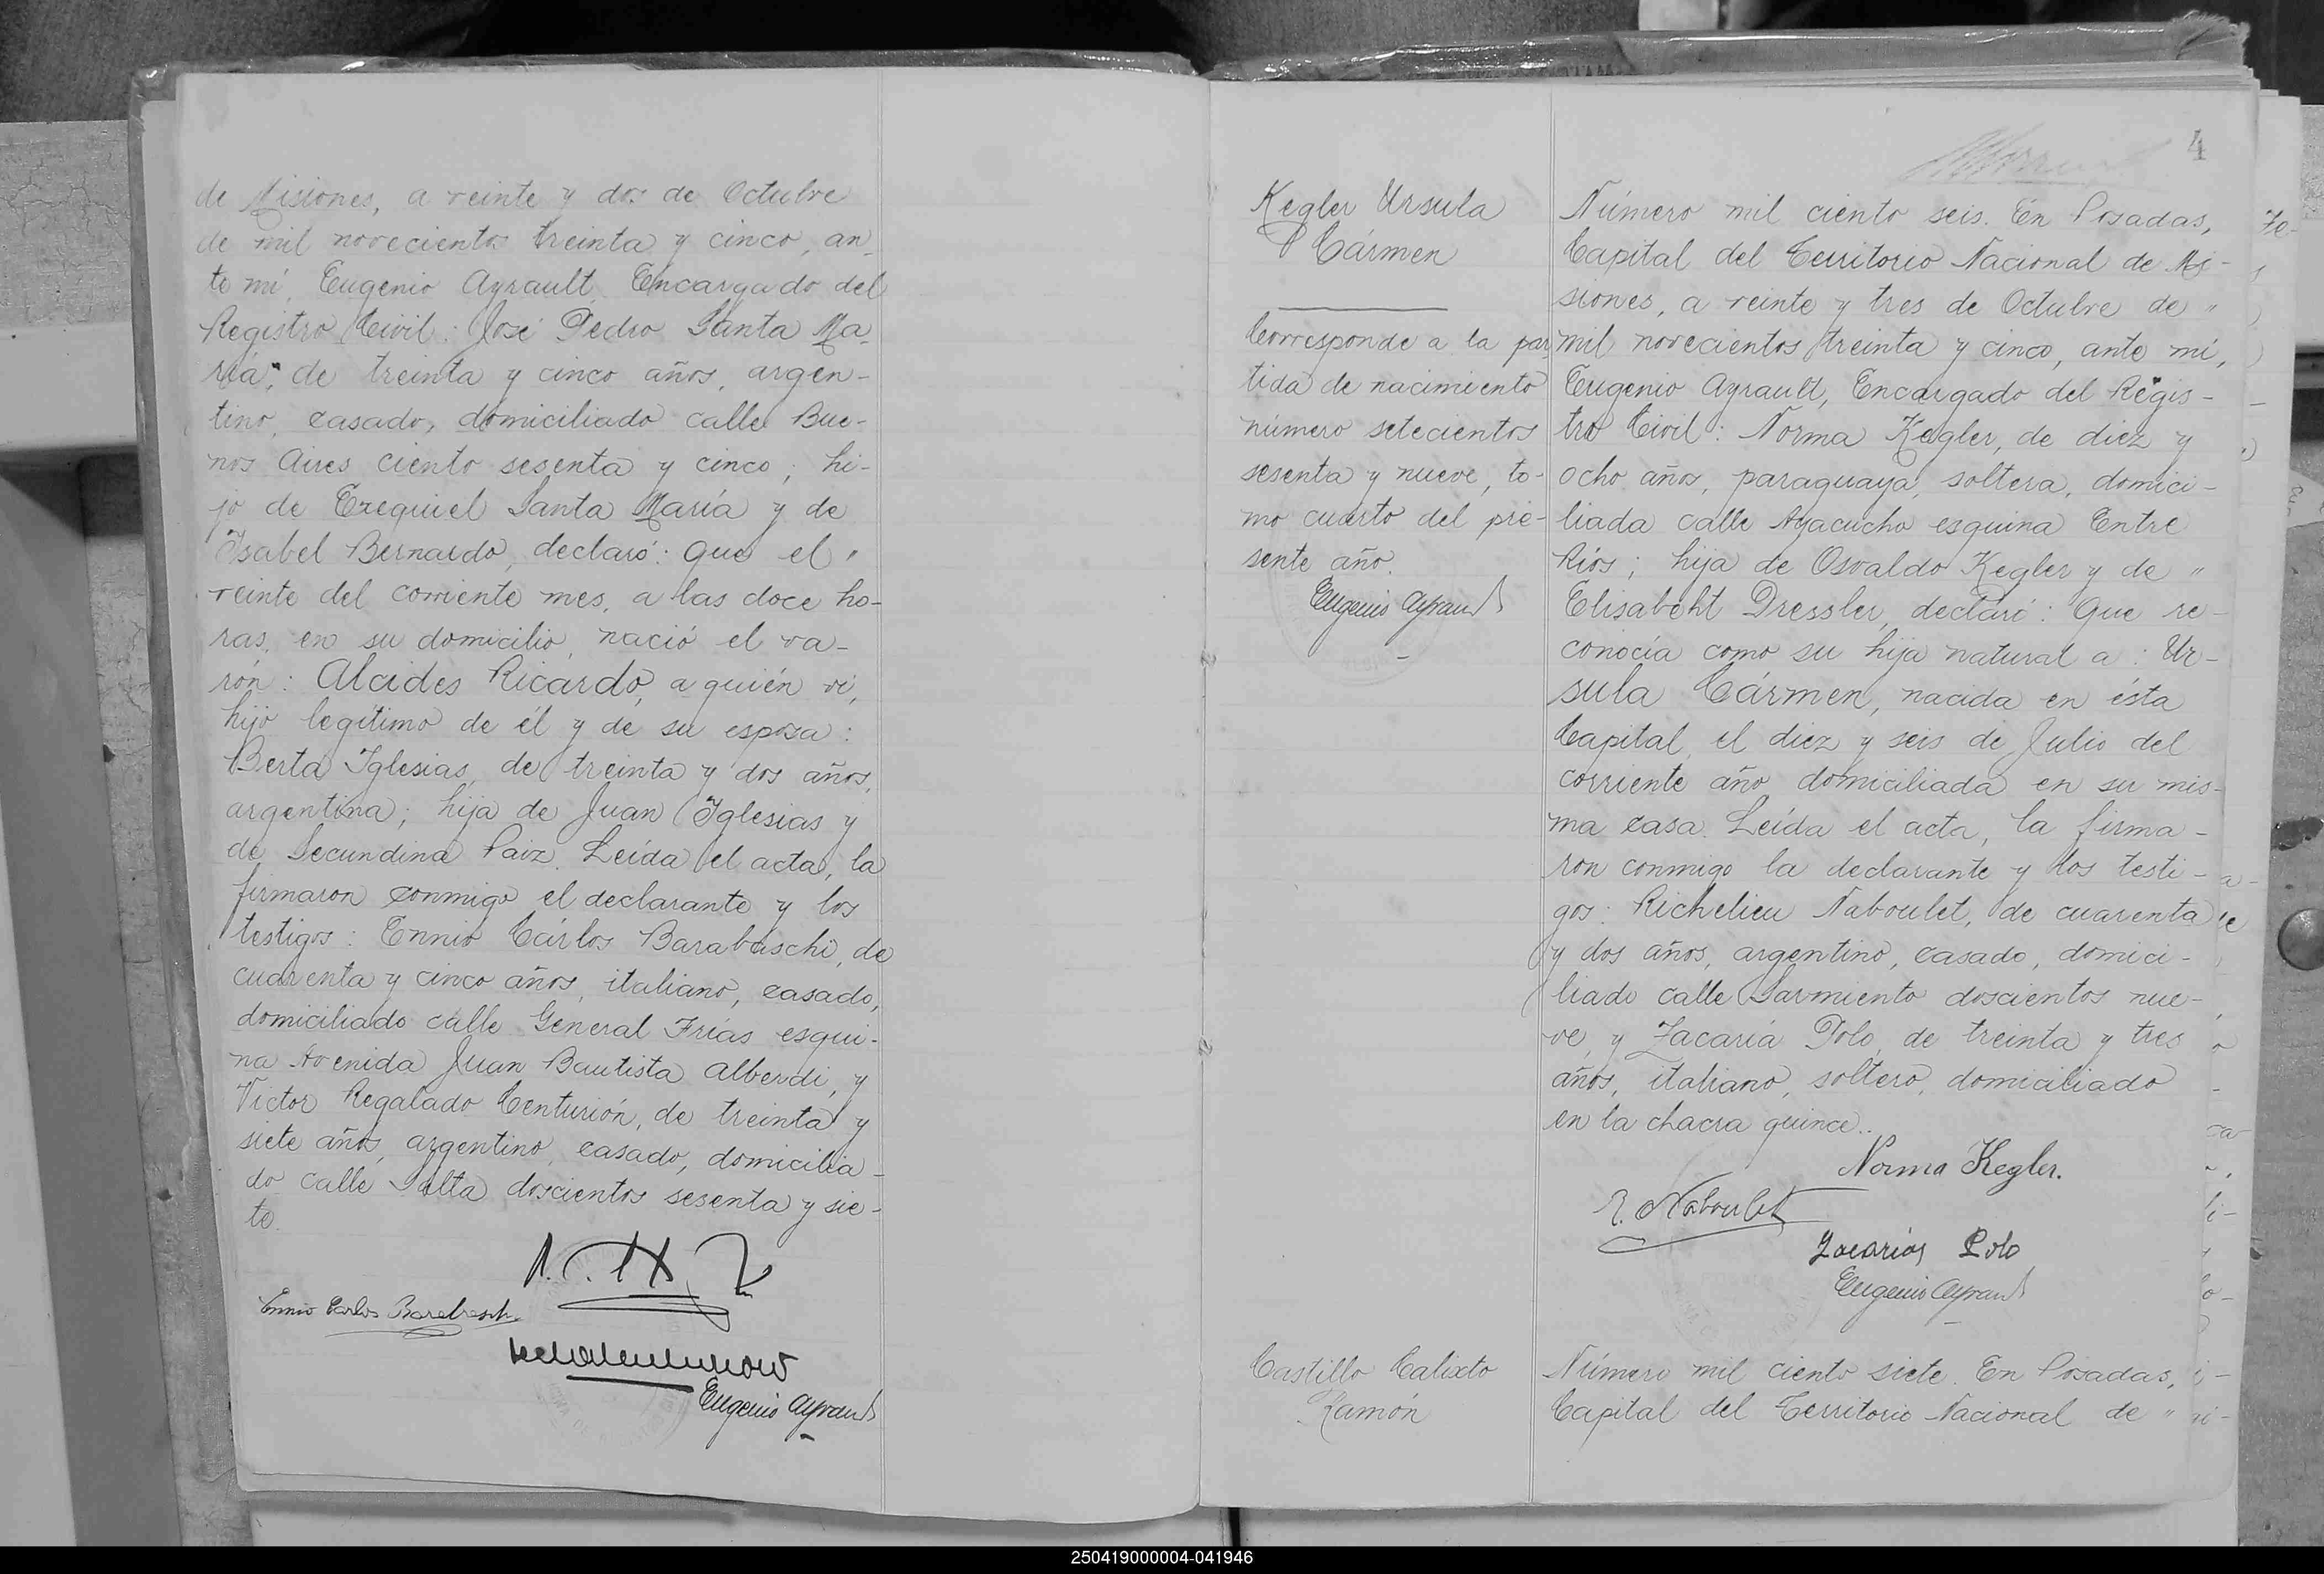 de Misiones, a veinte y dos de Octubre
de mil novecientos treinta y cinco, an-
te mí, Eugenio Ayrault, Encargado del
Registro Civil: José Pedro Santa Ma-
ría, de treinta y cinco años, argen-
tino, casado, domiciliado calle Bue-
nos Aires ciento sesenta y cinco; hi-
jo de Ezequiel Santa María y de
Isabel Bernardo, declaró: Que el "
veinte del corriente mes, a las doce ho-
ras, en su domicilio, nació el va-
rón: Alcides Ricardo, a quién ví,
hijo legítimo de él y de su esposa:
Berta Iglesias, de treinta y dos años,
argentina; hija de Juan Iglesias y
de Secundina Paiz. Leída el acta, la
firmaron conmigo el declarante y los
testigos: Ennio Cárlos Barabaschi, de
cuarenta y cinco años, italiano, casado,
domiciliado calle General Frías esqui-
na Avenida Juan Bautista Alberdi, y
Victor Regalado Centurión, de treinta y
siete años, argentino, casado, domicilia-
do calle Salta doscientos sesenta y sie-
te.
Ennio Carlos
Eugenio Ayrault
4
Kegler Ursula
Cármen
Corresponde a la par
tida de nacimiento
número setecientos
sesenta y nueve, to-
mo cuarto del pre-
sente año.
Eugenio Ayrault
Número mil ciento seis. En Posadas,
Capital del Territorio Nacional de Mi-
siones, a veinte y tres de Octubre de "
mil novecientos treinta y cinco, ante mí,
Eugenio Ayrault, Encargado del Regis-
tro Civil: Norma Kegler, de diez y
ocho años, paraguaya, soltera, domici-
liada calle Ayacucho esquina Entre
Ríos; hija de Osvaldo Kegler y de "
Elisabeht Dressler, declaró: Que re-
conocía como su hija natural a: Ur-
sula Cármen, nacida en ésta
Capital, el diez y seis de Julio del
corriente año, domiciliada en su mis-
ma casa. Leída el acta, la firma-
ron conmigo la declarante y los testi-
gos: Richelieu Naboulet, de cuarenta
y dos años, argentino, casado, domici-
liado calle Sarmiento doscientos nue-
ve, y Zacaría Polo, de treinta y tres
años, italiano, soltero, domiciliado
en la chacra quince..
Norma Kegler.
R. Naboulet
Zacarias Polo
Eugenio Ayrault
Castillo Calixto
Ramón
Número mil ciento siete. En Posadas,
Capital del Territorio Nacional de "
250419000004-041946